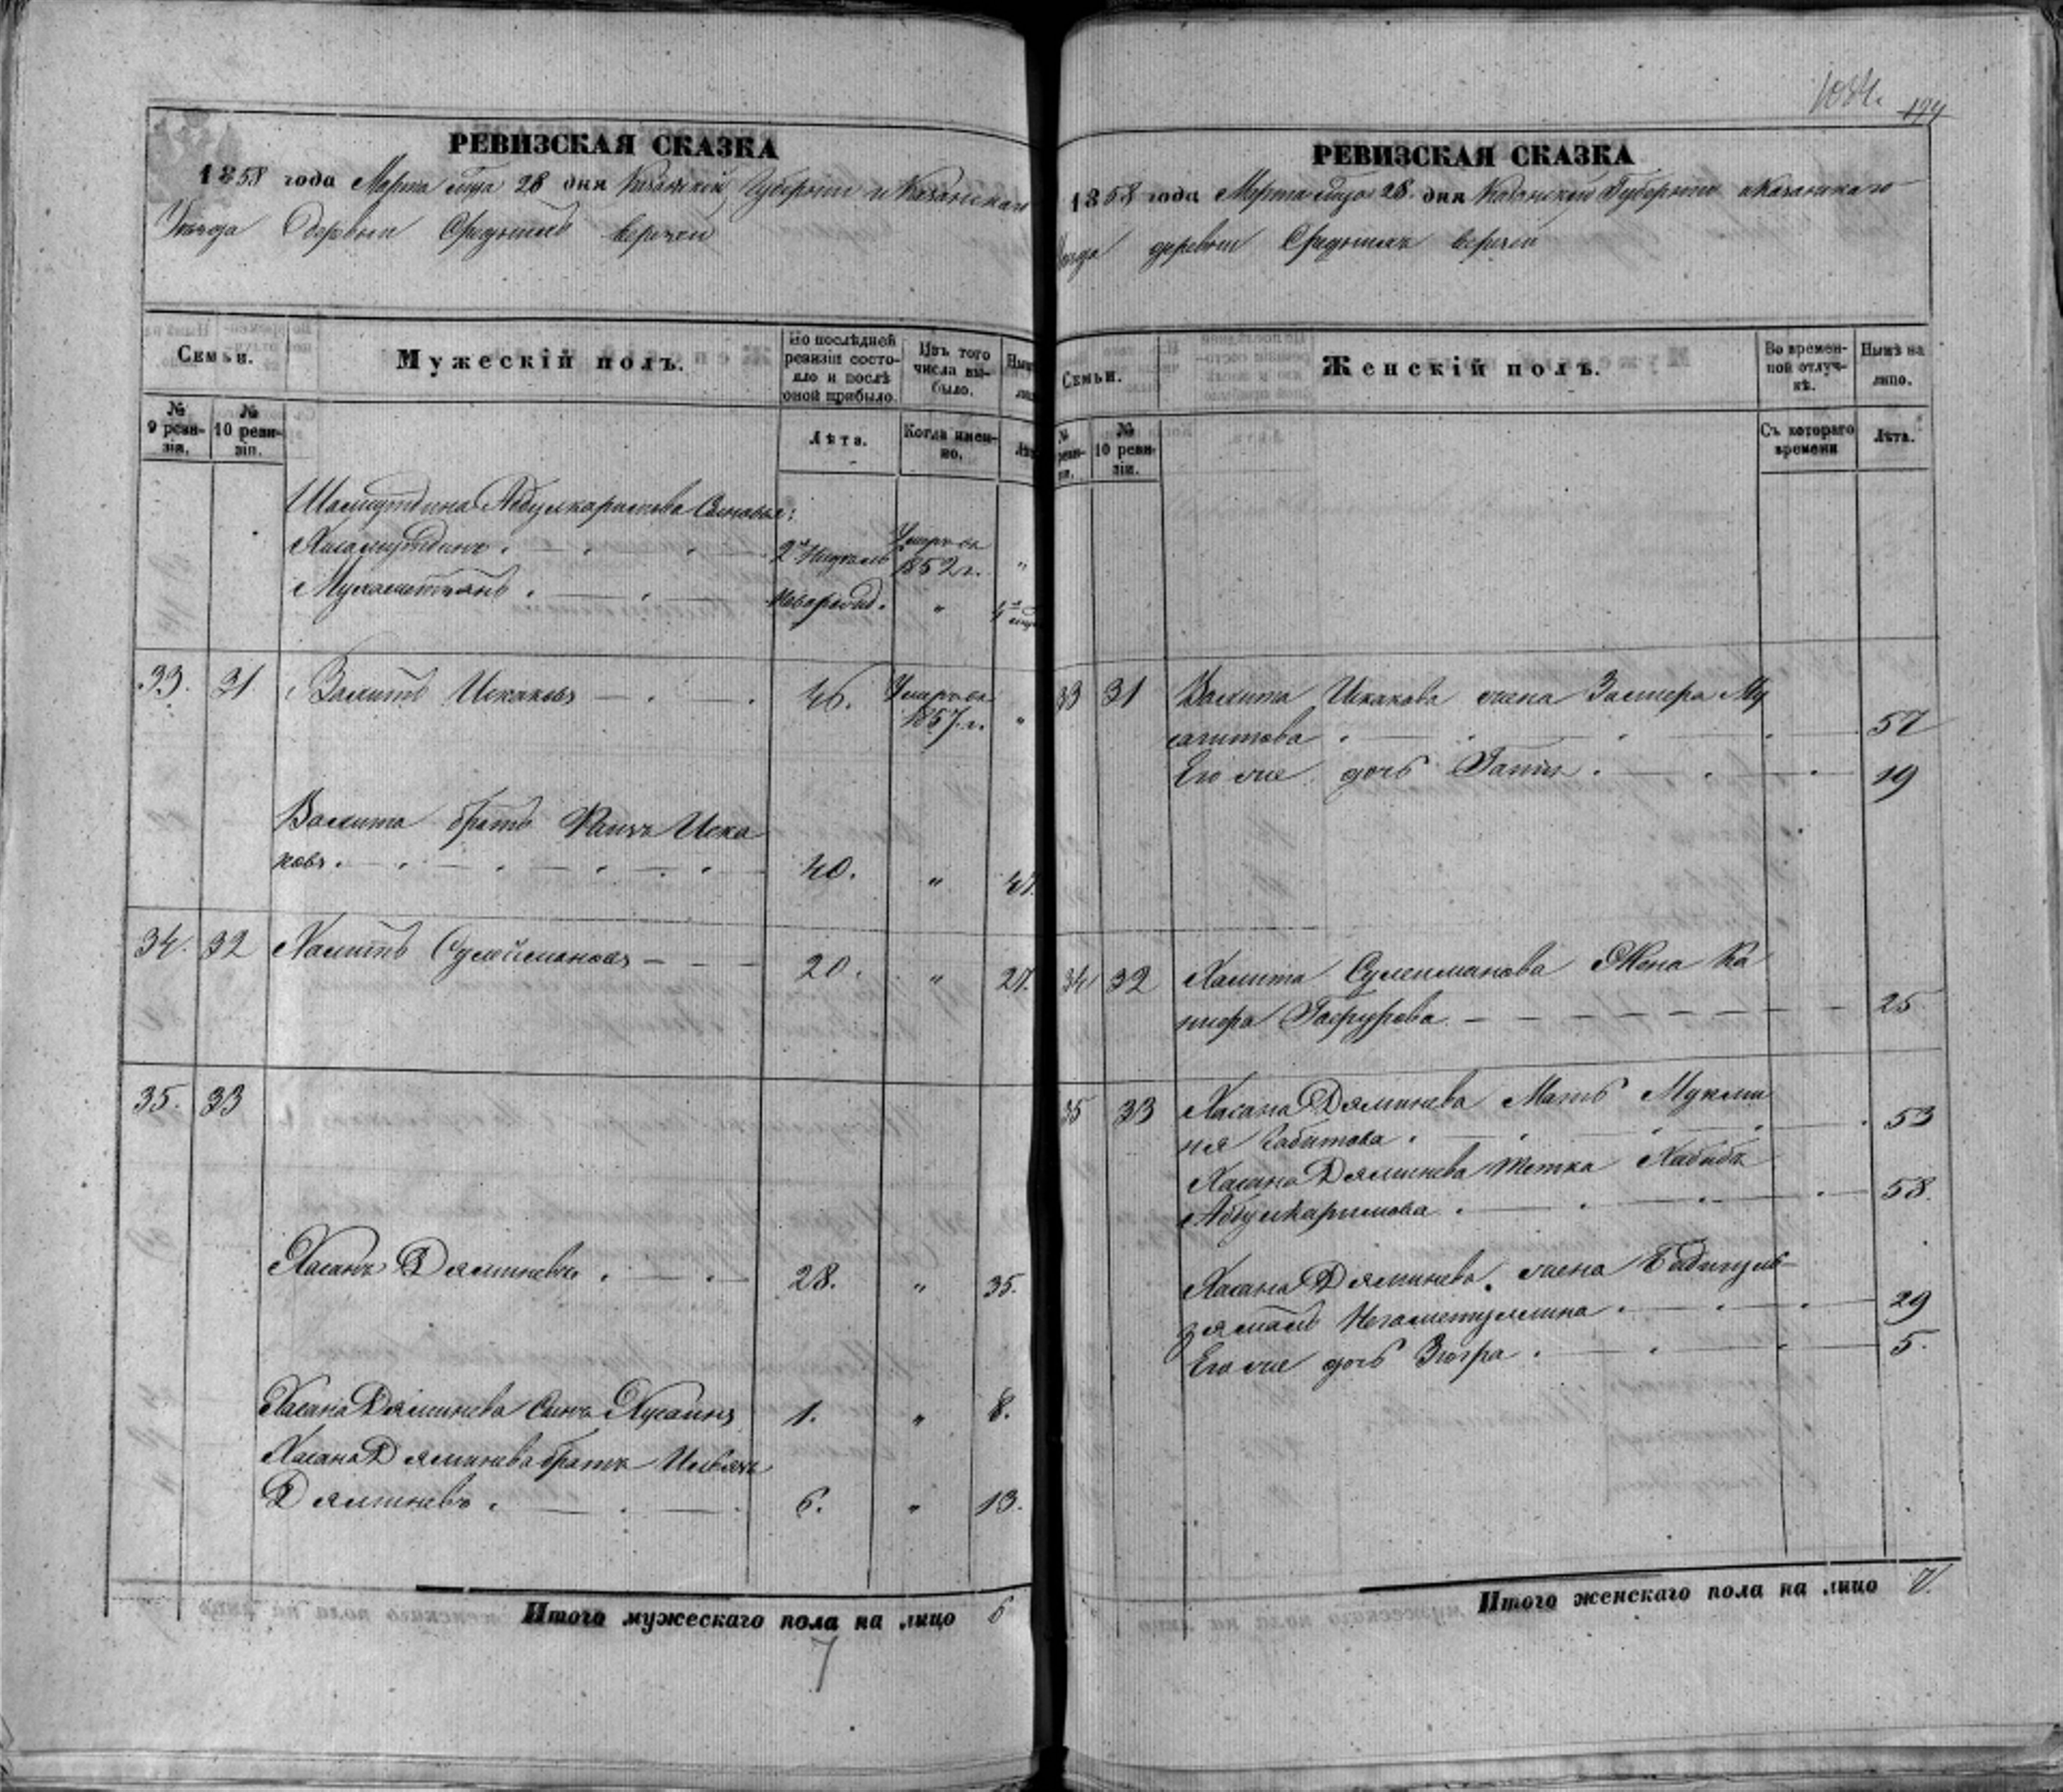 РЕВИЗСКАЯ СКАЗКА
1858 года Марта м‑ца 28 дня Казанской Губернии и Казанскаго
Уезда деревни Средних Верезей
Семьи.
Мужескій полъ.
По послѣдней ревизіи состояло и послѣ оной прибыло.
Изъ того числа выбыло.
№ 9 ревизіи.
№ 10 ревизіи.
Лѣта.
Когда именно.
Абдулкаримова Сыновья:
2 недель
Умръ въ 1852 г. "
Мухаметзянъ
новорожд. "
33. 31 Валитъ Искаковъ 46. Умръ въ 1857 г. "
Валита братъ Иска
ковъ. 40. " 47.
34. 32 Хамитъ Сулеймановъ 20. " 27.
35. 33
Хасанъ Дяминевъ. 28. " 35.
Хасана Дяминева Сынъ Хусаинъ 1. " 8.
Хасана Дяминева братъ Ильясъ
Дяминевъ. 6. " 13.
Итого мужескаго пола на лицо 6
7
1084.
РЕВИЗСКАЯ СКАЗКА
1858 года Марта м‑ца 28. дня Казанской Губернии и Казанскаго
деревни Средних Верезей
Семьи.
Женскій полъ.
Во временной отлучкѣ.
Нынѣ на лицо.
№ 10 ревизіи.
Съ котораго времени
Лѣта.
33 31 Валита Искакова жена Му
сагитова 57
Его же дочь 19
34 32 Хамита Сулейманова Жена Ка
Гафурова 25
35 33 Хасана Дяминева Мать Мукми
ня Габитова. 53
Хасана Дяминева тетка Хабиба
Абдулкаримова. 58.
Хасана Дяминева. жена Бадигуль
зямаль Негаметуллина. 29
Его же дочь Зюгра. 5.
Итого женскаго пола на лицо 7.